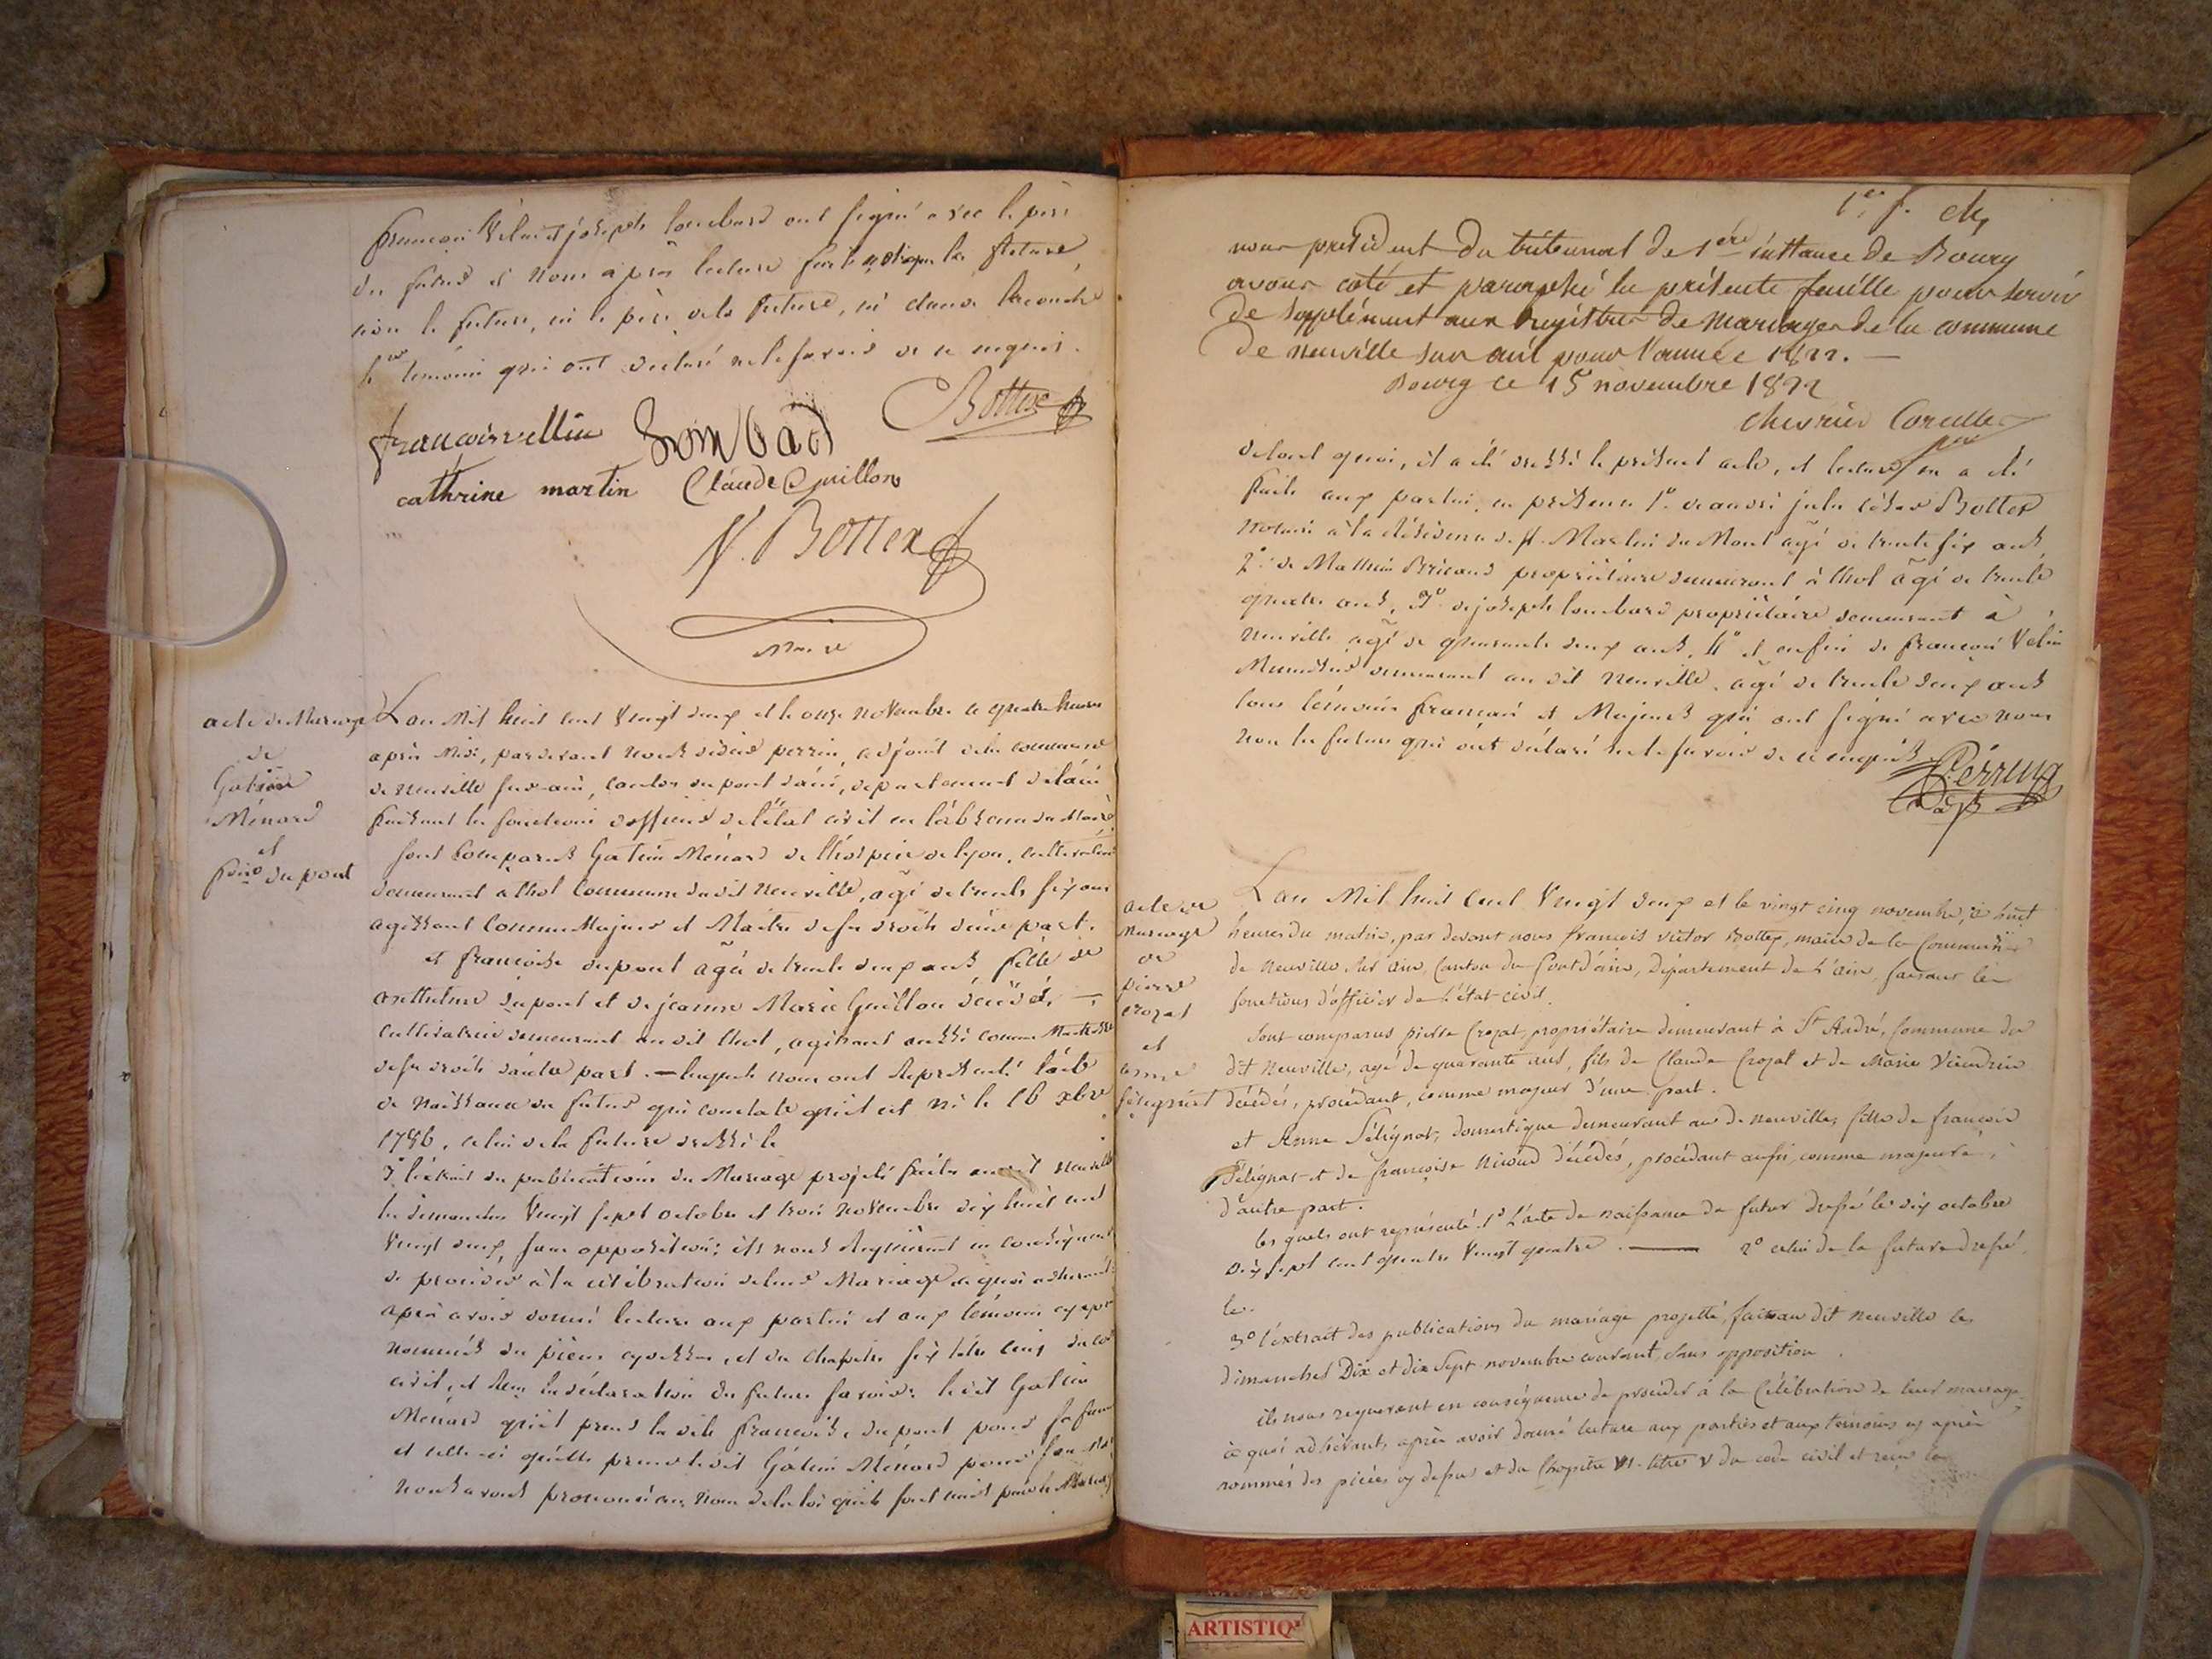 françois Velin et joseph lombard ont signé avec le père
du futur et nous après lecture faite
non le future, ni le père de la future, ni
témoin qui ont déclaré ne le savoir de ce requis.
francoisvellin Lombard Bottex
cathrine martin Claude Guillon
V. Bottex
Maire
acte de Mariage
de
Gatien
Ménard
et
fçoise dupont
L'an Mil huit cent Vingt deux et le onze novembre à quatre heures
après Midi, pardevant nous didier perrin, adjoint de la commune
de neuville sur ain, canton du pont d'ain, département de l'ain
faisant les fonctions d'officier de l'état civil en l'absence du Maire,
sont comparus Gatien Ménard de l'hospice de lyon, cultivateur
demeurant à thol commune dudit Neuville, agé de trente six ans
agissant comme Majeur et Maitre de ses droits d'une part.
et françoise dupont agée de trente deux ans fille de
anthelme dupont et de jeanne Marie Guillon décédés,
cultivatrice demeurant au dit thol, agissant aussi comme Maitresse
de ses droits d'autre part. — lesquels nous ont représenté l'acte
de naissance du futur qui constate qu'il est né le 16 xbre
1786, celui de la future dressé le
3° l'extrait des publications du Mariage projeté faites au dit neuville
les dimanches Vingt sept octobre et trois novembre dix huit cent
Vingt deux, sans opposition; ils nous requièrent en conséquence
de procéder à la célébration de leur Mariage à quoi adhérant;
après avoir donné lecture aux parties et aux témoins cy après
nommés des pièces cy dessus, et du chapitre six titre cinq du code
civil, et reçu la déclaration des futurs savoir: le dit Gatien
Ménard qu'il prend la dite françoise dupont pour sa femme
et celle-ci qu'elle prend le dit Gatien Ménard pour son Mari
nous avons prononcé au nom de la loi qu'ils sont unis par le Mariage
1er f. ch
nous président du tribunal de 1ère instance de Bourg
avons coté et paraphé la présente feuille pour servir
de supplément aux registres de mariages de la commune
de neuville sur ain pour l'année 1822. —
Bourg ce 15 novembre 1822
chevrier Corcelles
de tout quoi, il a été dressé le présent acte, et lecture en a été
faite aux parties, en présence 1° de jules césar Bottex
notaire à la résidence de st. Martin du Mont agé de trente six ans
2° de Mathieu Bricaud propriétaire demeurant à thol agé de trente
quatre ans, 3° de joseph lombard propriétaire demeurant à
neuville agé de quarante deux ans, 4° et enfin de françois Velin
demeurant au dit neuville, agé de trente deux ans
tous témoins français et Majeurs qui ont signé avec nous
non les futurs qui ont déclaré ne le savoir de ce enquis.
Perring
adjt
acte de
mariage
de
pierre
crozat
et
anne
felignat
L'an Mil huit Cent Vingt deux et le vingt cinq novembre, à huit
heures du matin, par devant nous françois victor Bottex, maire de la Commune
de Neuville sur ain, Canton du Pont d'ain, Département de l'ain, faisant les
fonctions d'officier de l'état-civil.
Sont comparus pierre Crozat propriétaire demeurant à St André, Commune du
dit Neuville, agé de quarante ans, fils de Claude Crozat et de Marie Vieudrin
décédés, procédant, comme majeur d'une part.
et Anne Félignat, domestique demeurant au dit neuville, fille de françois
Félignat et de françoise Nicoud décédés, procédant aussi comme majeure,
d'autre part.
les quels ont représenté 1° l'acte de naissance du futur dressé le dix octobre
Dix sept cent quatre Vingt quatre. — 2° celui de la future dressé
le.
3° l'extrait des publications du mariage projetté, faites au dit neuville les
dimanches Dix et dix sept novembre courant, sans opposition.
ils nous requerant en conséquence de procéder à la Célébration de leur mariage,
à quoi adhérant, après avoir donné lecture aux parties et aux témoins cy après
nommés des pièces cy dessus et du Chapitre VI. titre V du code civil et reçu la
ARTISTIQ